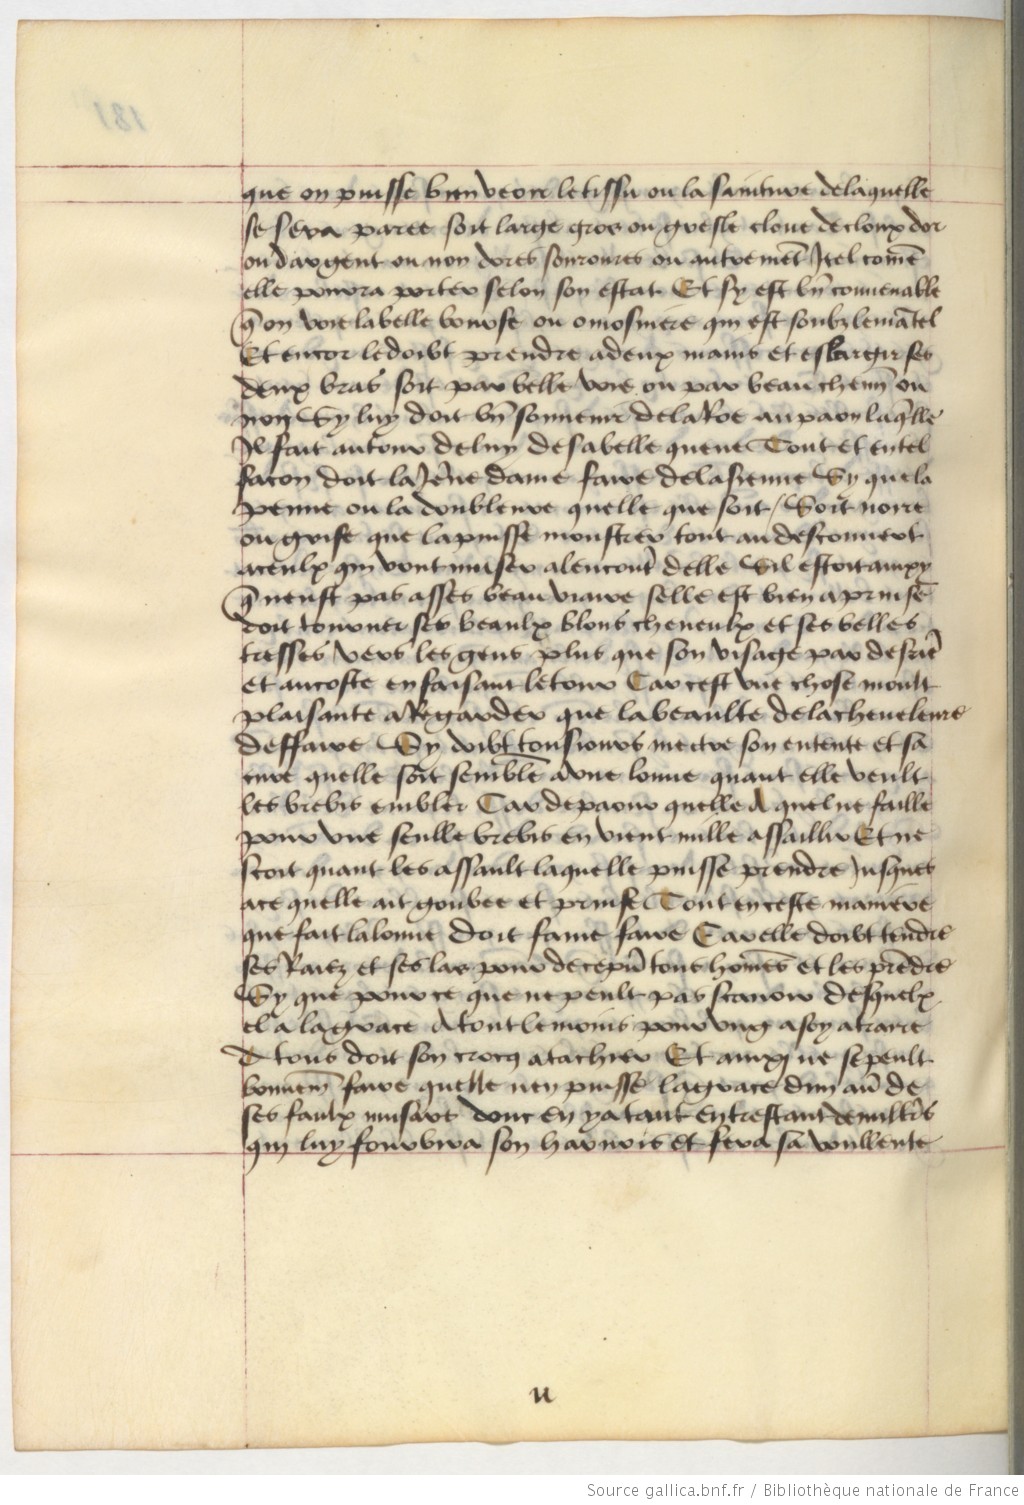 que on puisse bien veoir le tissu ou la sainture de laquelle
se sera paree soit large gros ou gresle cloue de cloux dor
ou dargent ou non dores sonroures ou autremẽt Itel comẽ
elle pourra porter selon son estat Et sy est bñ conuenable
q̃ on voie la belle bourse ou omosniere qui est soubz le mãtel
Et encor le doibt prendre a deux mains et eslargir ses
deux bras soit par belle voie ou par beau chemĩ ou
non Sy luy doit bñ souuenir de la Roe au paon laq̃lle
Il fait autour de luy de sa belle queue Tout et en tel
facon doit la Jẽne dame faire de la sienne Sy que la
penne ou la doubleure quelle que soit / Soit noire
ou grise que la puisse monstrer tout au descouuert
a ceulx qui vont muser alencont̃ delle Sil estoit ainxy
q̃ neust pas asses beau viaire selle est bien aprinse
doit tourner ses beaulx blons cheueulx et ses belles
tresses vers les gens plus que son visage par desriẽ
et au coste en faisant le tour Car cest vne chose moult
plaisante a Regarder que la beaulte de la cheueleure
deffaire Sy doibt tousiours mectre son entente et sa
cure quelle soit semble a vne louue quant elle veult
les brebis embler Car de paour quelle A quel ne faille
pour vne seulle brebis en vient mille assaillir Et ne
scoit quant les assault laquelle puisse prendre Jusques
a ce quelle ait goubee et prinse Tout en ceste maniere
que fait la louue doit fame faire Car elle doibt tendre
ses Raiz et ses las pour decepũ tous hom̃es et les prẽdre
Sy que pour ce que ne peult pas scauoir desquelx
el a la grace A tout le moins pour ung a soy atraire
A tous doit son crocq atachier Et ainxj ne se peult
bonnem̃ faire quelle nen puisse la grace dun aũ de
ses faulx musare donc en ya tant entrestant de milliẽs
qui luy fourbira son harnois et fera sa voullente
u
Source gallica.bnf.fr / Bibliothèque nationale de France